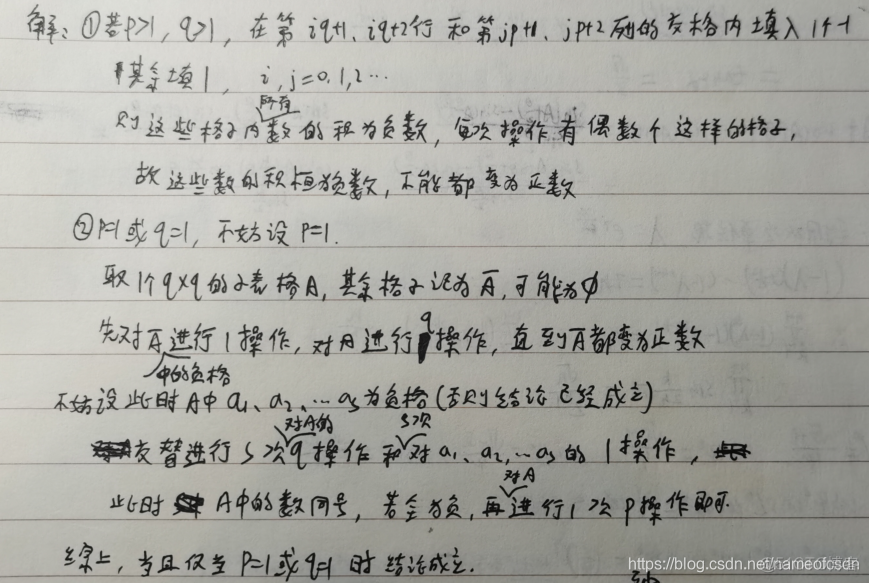 解：①若P>1，q>1，在第 iq+1、iq+2行 和第jp+1、jp+2列的交格内填入1个-1
其余填1，i,j=0,1,2…
则这些格子内所有数的积为负数，每次操作有偶数个这样的格子，
故这些数的积恒为负数，不能都变为正数
②P=1或q=1，不妨设P=1.
取1个q×q的子表格A，其余格子记为Ā，可能为φ
先对Ā中的负格进行1操作，对A进行q操作，直到Ā都变为正数
不妨设此时A中a₁、a₂、…as为负格（否则结论已经成立）
交替进行s次对A的q操作和s次对a₁、a₂,…as的1操作，
此时A中的数同号，若全为负，再对A进行1次P操作即可.
综上，当且仅当P=1或q=1时结论成立.
https://blog.csdn.net/nameofcsdn